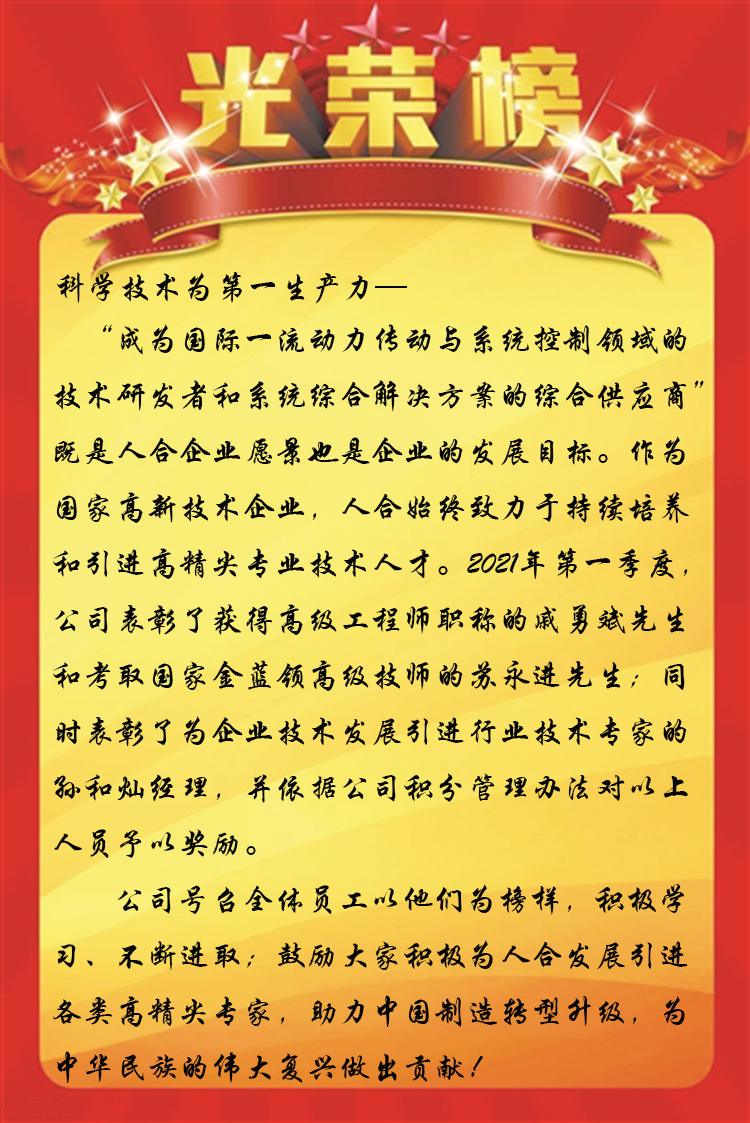 光荣榜
科学技术为第一生产力—
“成为国际一流动力传动与系统控制领域的
技术研发者和系统综合解决方案的综合供应商”
既是人合企业愿景也是企业的发展目标。作为
国家高新技术企业，人合始终致力于持续培养
和引进高精尖专业技术人才。2021年第一季度，
公司表彰了获得高级工程师职称的戚勇斌先生
和考取国家金蓝领高级技师的苏永进先生；同
时表彰了为企业技术发展引进行业技术专家的
孙和灿经理，并依据公司积分管理办法对以上
人员予以奖励。
公司号召全体员工以他们为榜样，积极学
习、不断进取；鼓励大家积极为人合发展引进
各类高精尖专家，助力中国制造转型升级，为
中华民族的伟大复兴做出贡献！